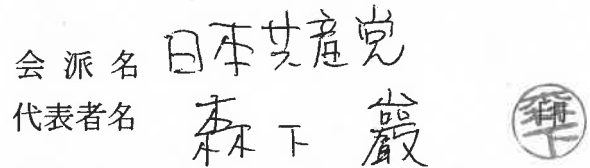 会派名 日本共産党
代表者名 森下 巖 印